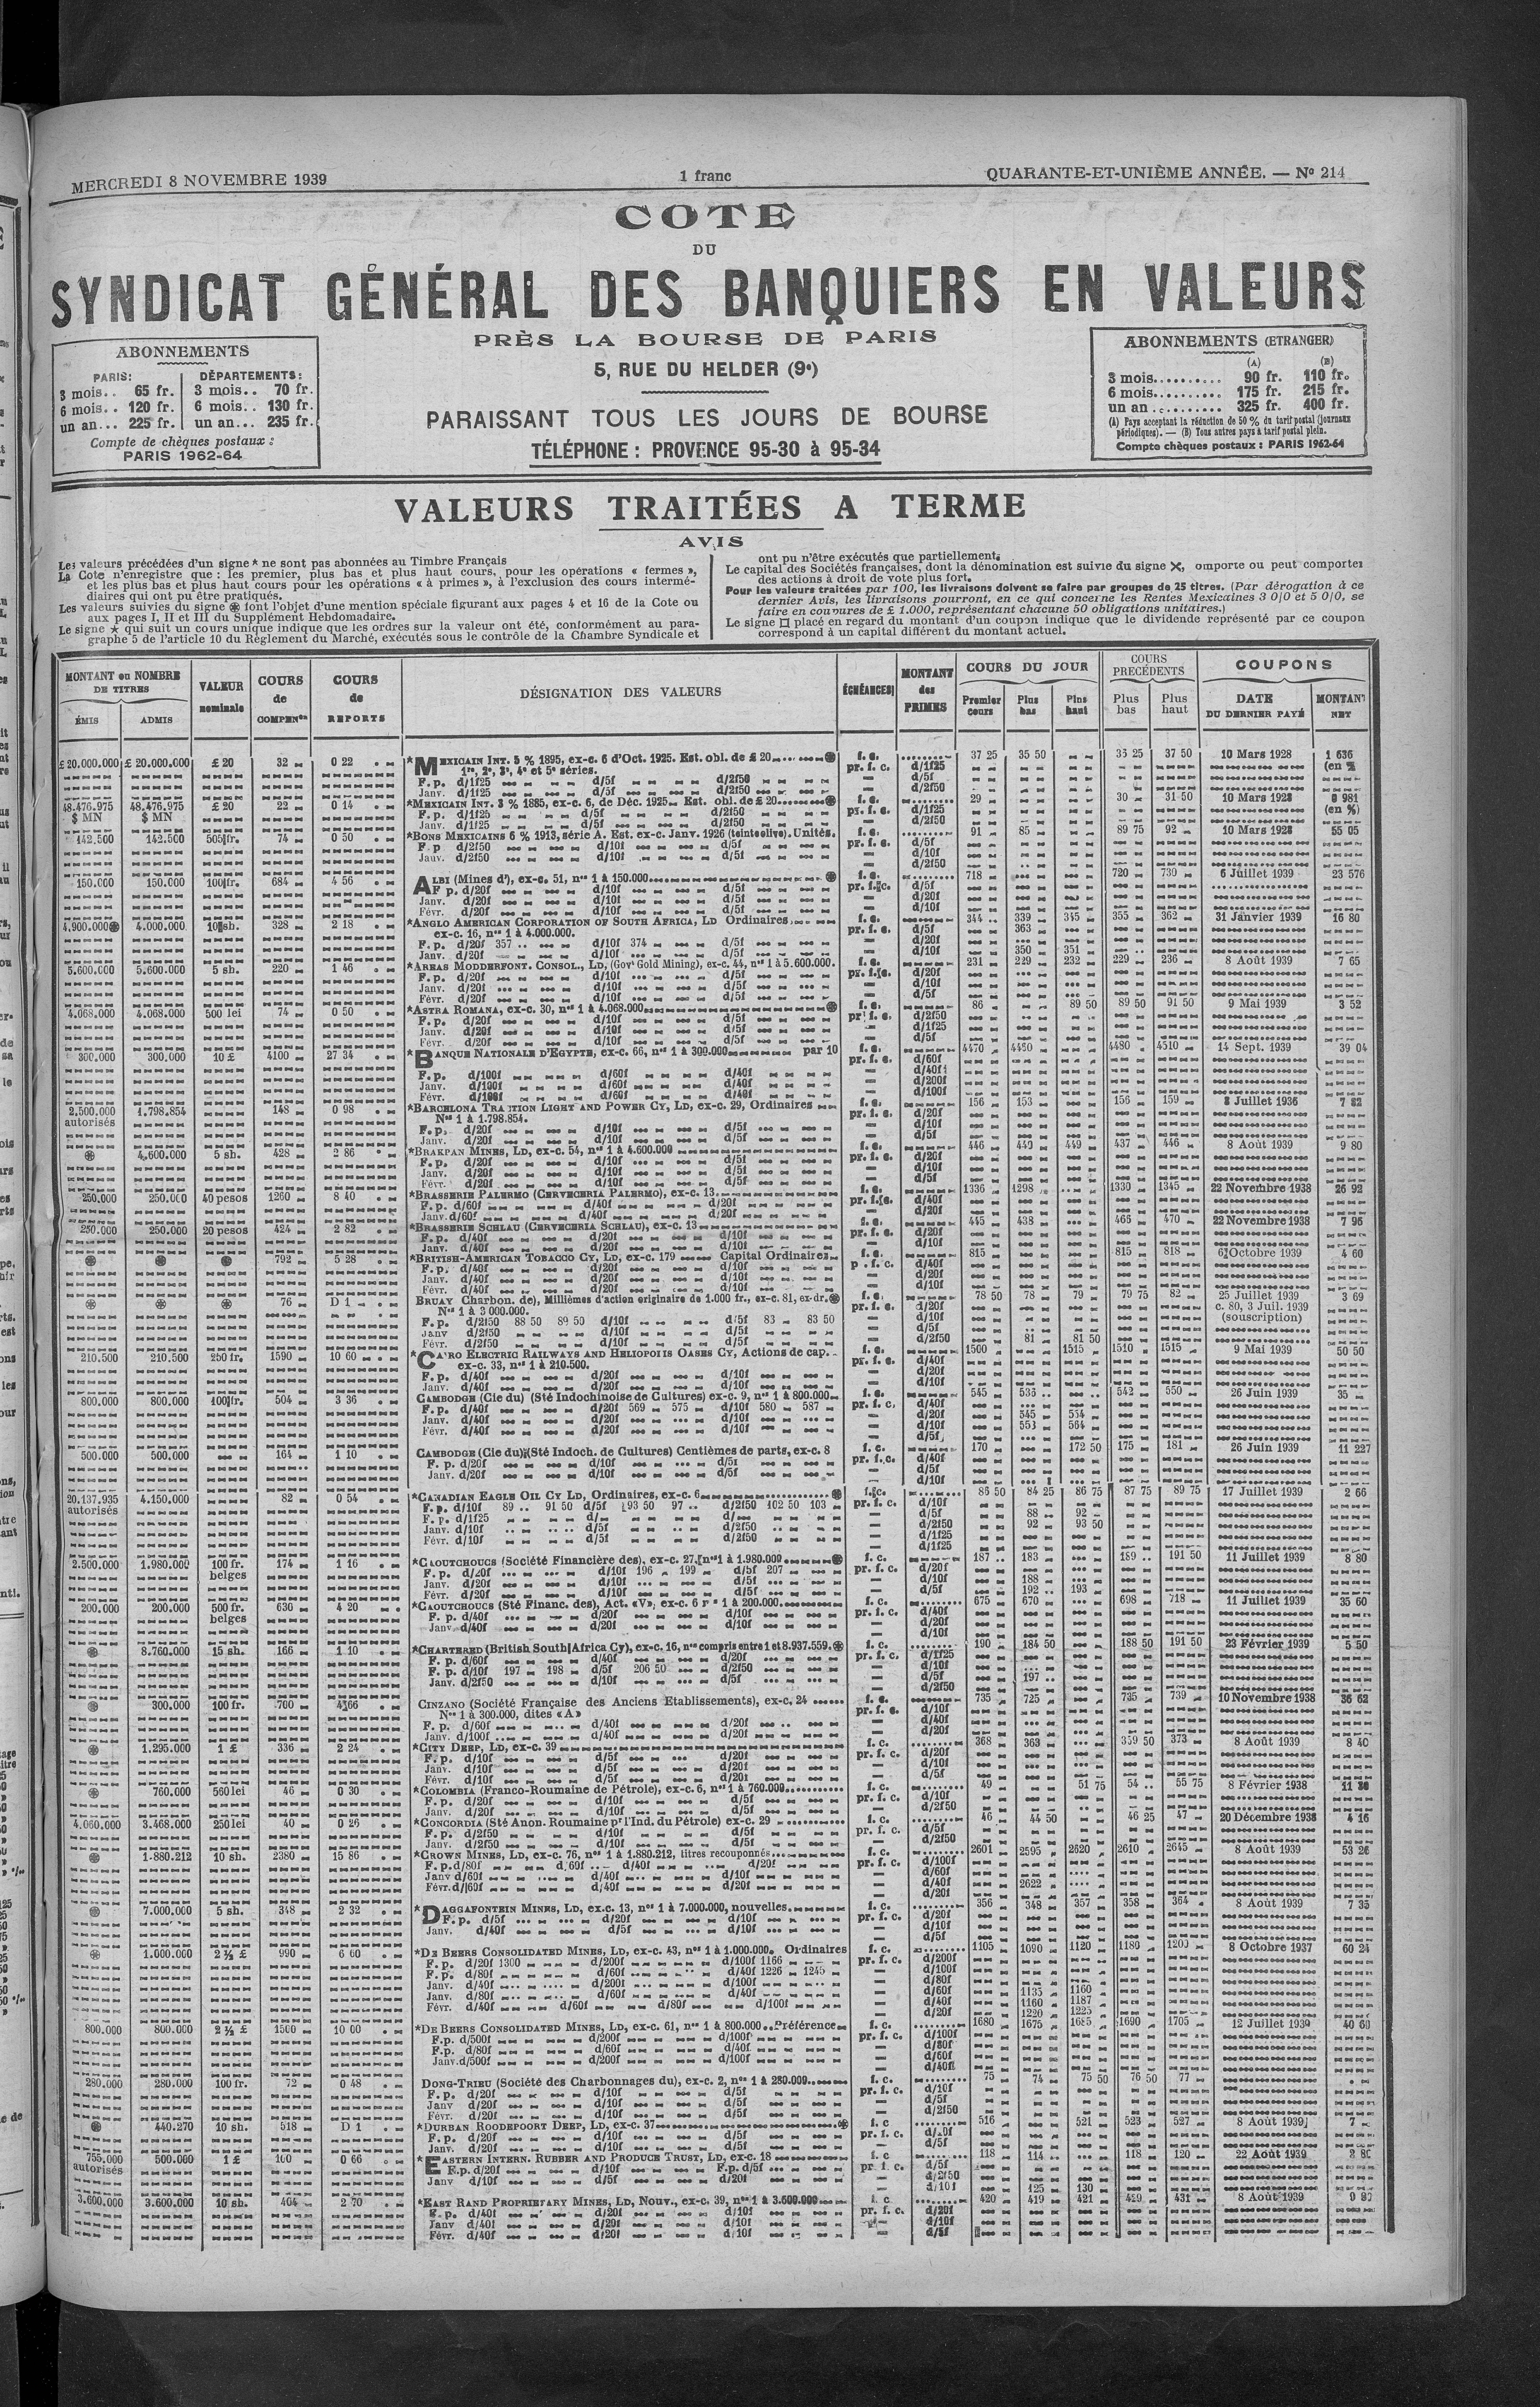 MERCREDI 8 NOVEMBRE 1939
1 franc
QUARANTE-ET-UNIÈME ANNÉE. — Nº 214
COTE
DU
SYNDICAT GÉNÉRAL DES BANQUIERS EN VALEURS
PRÈS LA BOURSE DE PARIS
5, RUE DU HELDER (9e)
PARAISSANT TOUS LES JOURS DE BOURSE
TÉLÉPHONE : PROVENCE 95-30 à 95-34
ABONNEMENTS
PARIS: DÉPARTEMENTS:
3 mois.. 65 fr. 3 mois.. 70 fr.
6 mois.. 120 fr. 6 mois.. 130 fr.
un an... 225 fr. un an... 235 fr.
Compte de chèques postaux :
PARIS 1962-64
ABONNEMENTS (ETRANGER)
(A) (B)
3 mois.......... 90 fr. 110 fr.
6 mois.......... 175 fr. 215 fr.
un an .......... 325 fr. 400 fr.
(A) Pays acceptant la réduction de 50 % du tarif postal (journaux
périodiques). — (B) Tous autres pays à tarif postal plein.
Compte chèques postaux : PARIS 1962-64
VALEURS TRAITÉES A TERME
AVIS
Les valeurs précédées d'un signe * ne sont pas abonnées au Timbre Français
La Cote n'enregistre que : les premier, plus bas et plus haut cours, pour les opérations « fermes »,
et les plus bas et plus haut cours pour les opérations « à primes », à l'exclusion des cours intermé-
diaires qui ont pu être pratiqués.
Les valeurs suivies du signe ⊛ font l'objet d'une mention spéciale figurant aux pages 4 et 16 de la Cote ou
aux pages I, II et III du Supplément Hebdomadaire.
Le signe ★ qui suit un cours unique indique que les ordres sur la valeur ont été, conformément au para-
graphe 5 de l'article 10 du Règlement du Marché, exécutés sous le contrôle de la Chambre Syndicale et
ont pu n'être exécutés que partiellement.
Le capital des Sociétés françaises, dont la dénomination est suivie du signe ✕, omporte ou peut comporter
des actions à droit de vote plus fort.
Pour les valeurs traitées par 100, les livraisons doivent se faire par groupes de 25 titres. (Par dérogation à ce
dernier Avis, les livraisons pourront, en ce qui concerne les Rentes Mexicaines 3 0/0 et 5 0/0, se
faire en coupures de £ 1.000, représentant chacune 50 obligations unitaires.)
Le signe □ placé en regard du montant d'un coupon indique que le dividende représenté par ce coupon
correspond à un capital différent du montant actuel.
MONTANT ou NOMBRE DE TITRES
ÉMIS ADMIS
VALEUR nominale
COURS de COMPENon
COURS de REPORTS
DÉSIGNATION DES VALEURS
ÉCHÉANCES
MONTANT des PRIMES
COURS DU JOUR
Premier cours Plus bas Plus haut
COURS PRÉCÉDENTS
Plus bas Plus haut
COUPONS
DATE DU DERNIER PAYÉ MONTANT NET
£ 20.000.000 £ 20.000.000 £ 20 32 0 22 *MEXICAIN INT. 5 % 1895, ex-c. 6 d'Oct. 1925. Est. obl. de £ 20 ⊛ f. c. 37 25 35 50 35 25 37 50 10 Mars 1928 1 636
1re, 2e, 3e, 4e et 5e séries. pr. f. c. d/1f25 (en %)
F. p. d/1f25 d/5f d/2f50 d/5f
Janv. d/1f25 d/5f d/2f50 d/2f50
48.476.975 48.476.975 £ 20 22 0 14 *MEXICAIN INT. 3 % 1885, ex-c. 6, de Déc. 1925 Est. obl. de £ 20 ⊛ f. c. 29 30 31 50 10 Mars 1928 0 981
$ MN $ MN F. p. d/1f25 d/5f d/2f50 pr. f. c. d/1f25 (en %)
Janv. d/1f25 d/5f d/2f50 d/2f50
142.500 142.500 505 fr. 74 0 50 *BONS MEXICAINS 6 % 1913, série A. Est. ex-c. Janv. 1926 (teinte olive). Unités. f. c. 91 85 89 75 92 10 Mars 1928 55 05
F. p d/2f50 d/10f d/5f pr. f. c. d/5f
Janv. d/2f50 d/10f d/5f d/10f
d/2f50
150.000 150.000 100 fr. 684 4 56 ALBI (Mines d'), ex-c. 51, nos 1 à 150.000 ⊛ f. c. 718 720 730 6 Juillet 1939 23 576
F p. d/20f d/10f d/5f pr. f. c. d/5f
Janv. d/20f d/10f d/5f d/20f
Févr. d/20f d/10f d/5f d/10f
4.900.000⊛ 4.000.000 10 sh. 328 2 18 *ANGLO AMERICAN CORPORATION OF SOUTH AFRICA, LD Ordinaires f. c. 344 339 345 355 362 31 Janvier 1939 16 80
ex-c. 16, nos 1 à 4.000.000. pr. f. c. d/5f 363
F. p. d/20f 357 d/10f 374 d/5f d/20f
Janv. d/20f d/10f d/5f d/10f 350 351
5.600.000 5.600.000 5 sh. 220 1 46 *AREAS MODDERFONT. CONSOL., LD, (Govt Gold Mining), ex-c. 44, nos 1 à 5.600.000. f. c. 231 229 232 229 236 8 Août 1939 7 65
F. p. d/20f d/10f d/5f pr. f. c. d/20f
Janv. d/20f d/10f d/5f d/10f
Févr. d/20f d/10f d/5f d/5f
4.068.000 4.068.000 500 lei 74 0 50 *ASTRA ROMANA, ex-c. 30, nos 1 à 4.068.000 ⊛ f. c. 86 89 50 89 50 91 50 9 Mai 1939 3 52
F. p. d/20f d/10f d/5f pr. f. c. d/2f50
Janv. d/20f d/10f d/5f d/1f25
Févr. d/20f d/10f d/5f d/5f
300.000 300.000 10 £ 4100 27 34 *BANQUE NATIONALE D'EGYPTE, ex-c. 66, nos 1 à 300.000 par 10 f. c. 4470 4450 4480 4510 14 Sept. 1939 39 04
pr. f. c. d/60f
F. p. d/100f d/60f d/40f d/40f
Janv. d/100f d/60f d/40f d/200f
Févr. d/100f d/60f d/40f d/100f
2.500.000 1.798.854 148 0 98 *BARCELONA TRA TION LIGHT AND POWER CY, LD, ex-c. 29, Ordinaires f. c. 156 153 156 159 8 Juillet 1936 7 82
autorisés Nos 1 à 1.798.854. pr. f. c. d/20f
F. p. d/20f d/10f d/5f d/10f
Janv. d/20f d/10f d/5f d/5f
⊛ 4.600.000 5 sh. 428 2 86 *BRAKPAN MINES, LD, ex-c. 54, nos 1 à 4.600.000 f. c. 446 440 449 437 446 8 Août 1939 9 80
F. p. d/20f d/10f d/5f pr. f. c. d/20f
Janv. d/20f d/10f d/5f d/10f
Févr. d/20f d/10f d/5f d/5f
250.000 250.000 40 pesos 1260 8 40 *BRASSERIE PALERMO (CERVECERIA PALERMO), ex-c. 13 f. c. 1336 1298 1330 1345 22 Novembre 1938 26 92
F. p. d/60f d/40f d/20f pr. f. c. d/40f
Janv. d/60f d/40f d/20f d/20f
250.000 250.000 20 pesos 424 2 82 *BRASSERIE SCHLAU (CERVECERIA SCHLAU), ex-c. 13 f. c. 445 438 465 470 22 Novembre 1938 7 96
F. p. d/40f d/20f d/10f pr. f. c. d/20f
Janv. d/40f d/20f d/10f d/10f
⊛ ⊛ ⊛ 792 5 28 *BRITISH-AMERICAN TOBACCO CY, LD, ex-c. 179 Capital Ordinaires f. c. 815 815 818 6 Octobre 1939 4 60
F. p. d/40f d/20f d/10f p . f. c. d/40f
Janv. d/40f d/20f d/10f d/20f
Févr. d/40f d/20f d/10f d/10f
⊛ ⊛ ⊛ 76 D 1 BRUAY Charbon. de), Millièmes d'action originaire de 1.000 fr., ex-c. 81, ex-dr. ⊛ f. c. 78 50 78 79 79 75 82 25 Juillet 1939 3 69
Nos 1 à 3 000.000. pr. f. c. d/20f c. 80, 3 Juil. 1939
F. p. d/2f50 88 50 89 50 d/10f d/5f 83 83 50 d/10f (souscription)
Janv d/2f50 d/10f d/5f d/5f
Févr. d/2f50 d/10f d/5f d/2f50 81 81 50
210.500 210.500 250 fr. 1590 10 60 *CAIRO ELECTRIC RAILWAYS AND HELIOPOLIS OASES CY, Actions de cap. f. c. 1500 1515 1510 1515 9 Mai 1939 50 50
ex-c. 33, nos 1 à 210.500. pr. f. c. d/40f
F. p. d/40f d/20f d/10f d/20f
Janv. d/40f d/20f d/10f d/10f
800.000 800.000 100 fr. 504 3 36 CAMBODGE (Cie du) (Sté Indochinoise de Cultures) ex-c. 9, nos 1 à 800.000 f. c. 545 535 542 550 26 Juin 1939 35
F. p. d/40f d/20f 569 575 d/10f 580 587 pr. f. c. d/40f
Janv. d/40f d/20f d/10f d/20f 545 554
Févr. d/40f d/20f d/10f d/10f 553 564
d/5f
500.000 500.000 164 1 10 CAMBODGE (Cie du) (Sté Indoch. de Cultures) Centièmes de parts, ex-c. 8 f. c. 170 172 50 175 181 26 Juin 1939 11 227
F. p. d/20f d/10f d/5f pr. f. c. d/40f
Janv. d/20f d/10f d/5f d/5f
d/10f
20.137.935 4.150.000 82 0 54 *CANADIAN EAGLE OIL CY LD, Ordinaires, ex-c. 6 ⊛ f. c. 86 50 84 25 86 75 87 75 89 75 17 Juillet 1939 2 66
autorisés F. p. d/10f 89 91 50 d/5f 93 50 97 d/2f50 102 50 103 pr. f. c. d/10f
F. p. d/1f25 d/ d/ d/5f 88 92
Janv. d/10f d/5f d/2f50 d/2f50 92 93 50
Févr. d/10f d/5f d/2f50 d/1f25
d/1f25
2.500.000 1.980.000 100 fr. 174 1 16 *CAOUTCHOUCS (Société Financière des), ex-c. 27, nos 1 à 1.980.000 ⊛ f. c. 187 183 189 191 50 11 Juillet 1939 8 80
belges F. p. d/20f d/10f 196 199 d/5f 207 pr. f. c. d/20f
Janv. d/20f d/10f d/5f d/10f 188
Févr. d/20f d/10f d/5f d/5f 192 193
200.000 200.000 500 fr. 630 4 20 *CAOUTCHOUCS (Sté Financ. des), Act. «V», ex-c. 6 1 à 200.000 f. c. 675 670 698 718 11 Juillet 1939 35 60
belges F. p. d/40f d/20f d/10f pr. f. c. d/40f
Janv. d/40f d/20f d/10f d/20f
d/10f
⊛ 8.760.000 15 sh. 166 1 10 *CHARTERED (British South Africa Cy), ex-c. 16, nos compris entre 1 et 8.937.559. ⊛ f. c. 190 184 50 188 50 191 50 23 Février 1939 5 50
F. p. d/60f d/40f d/20f pr. f. c. d/1f25
F. p. d/10f 197 198 d/5f 206 50 d/2f50 d/10f
Janv. d/2f50 d/10f d/5f d/5f 197
d/2f50
⊛ 300.000 100 fr. 700 4 66 CINZANO (Société Française des Anciens Etablissements), ex-c. 24 f. c. 735 725 735 739 10 Novembre 1938 36 62
Nos 1 à 300.000, dites «A» pr. f. c. d/10f
F. p. d/60f d/40f d/20f d/40f
Janv. d/100f d/40f d/20f d/20f
⊛ 1.295.000 1 £ 336 2 24 *CITY DEEP, LD, ex-c. 39 f. c. 368 363 359 50 373 8 Août 1939 8 40
F. p. d/10f d/5f d/20f pr. f. c. d/20f
Janv. d/10f d/5f d/20f d/10f
Févr. d/10f d/5f d/20f d/5f
⊛ 760.000 560 lei 46 0 30 *COLOMBIA (Franco-Roumaine de Pétrole), ex-c. 6, nos 1 à 760.000 f. c. 49 51 75 54 55 75 8 Février 1938
F. p. d/20f d/10f d/5f pr. f. c. d/10f
Janv. d/20f d/10f d/5f d/2f50
4.060.000 3.468.000 250 lei 40 0 26 *CONCORDIA (Sté Anon. Roumaine pr l'Ind. du Pétrole) ex-c. 29 f. c. 46 44 50 46 25 47 20 Décembre 1938 4 16
F. p. d/2f50 d/10f d/5f pr. f. c. d/5f
Janv. d/2f50 d/10f d/5f d/2f50
⊛ 1.880.212 10 sh. 2380 15 86 *CROWN MINES, LD, ex-c. 76, nos 1 à 1.880.212, titres recouponnés f. c. 2601 2595 2620 2610 2645 8 Août 1939
F. p. d/80f d/60f d/40f d/20f pr. f. c. d/100f
Janv d/60f d/40f d/10f d/60f
Févr. d/60f d/40f d/20f d/40f 2622
d/20f
⊛ 7.000.000 5 sh. 348 2 32 *DAGGAFONTEIN MINES, LD, ex.c. 13, nos 1 à 7.000.000, nouvelles f. c. 356 348 357 358 364 8 Août 1939 7 35
F. p. d/5f d/20f d/10f pr. f. c. d/20f
Janv. d/40f d/5f d/10f d/10f
d/5f
⊛ 1.000.000 2 ½ £ 990 6 60 *DE BEERS CONSOLIDATED MINES, LD, ex-c. 43, nos 1 à 1.000.000. Ordinaires f. c. 1105 1090 1120 1180 1200 8 Octobre 1937 60 24
F. p. d/20f 1300 d/200f d/100f 1166 pr. f. c. d/200f
F. p. d/80f d/60f d/40f 1226 1245 d/100f
Janv. d/40f d/200f d/100f d/80f
Janv. d/80f d/60f d/40f d/60f 1135 1160
Févr. d/40f d/60f d/80f d/100f d/40f 1160 1187
d/20f 1220 1225
800.000 800.000 2 ½ £ 1500 10 00 *DE BEERS CONSOLIDATED MINES, LD, ex-c. 61, nos 1 à 800.000 Préférence f. c. 1680 1675 1685 1690 1705 12 Juillet 1939 40 60
F. p. d/500f d/200f d/100f pr. f. c. d/100f
F. p. d/80f d/60f d/40f d/80f
Janv. d/500f d/200f d/100f d/60f
d/40f
280.000 280.000 100 fr. 72 0 48 DONG-TRIEU (Société des Charbonnages du), ex-c. 2, nos 1 à 280.000 f. c. 75 74 75 50 76 50 77
F. p. d/20f d/10f d/5f pr. f. c. d/10f
Janv d/20f d/10f d/5f d/5f
Févr. d/20f d/10f d/5f d/2f50
⊛ 440.270 10 sh. 518 D 1 *DURBAN ROODEPOORT DEEP, LD, ex-c. 37 ⊛ f. c 516 521 523 527 8 Août 1939 7
F. p. d/20f d/10f d/5f pr. f. c.
Janv. d/20f d/10f d/5f d/5f
755.000 500.000 1 £ 100 0 66 *EASTERN INTERN. RUBBER AND PRODUCE TRUST, LD, ex-c. 18 f. c 118 114 118 120 22 Août 1939
autorisés F. p. d/20f d/10f F.p. d/5f pr. f. c. d/5f
Janv d/10f d/5f d/20f d/2f50
d/10f 125 130
3.600.000 3.600.000 10 sh. 404 2 70 *EAST RAND PROPRIETARY MINES, LD, Nouv., ex-c. 39, nos 1 à 3.600.000 f. c 420 419 421 429 431 8 Août 1939
F. p. d/40f d/20f d/10f pr. f. c. d/20f
Janv d/40f d/20f d/10f d/10f
Févr. d/40f d/20f d/10f d/5f